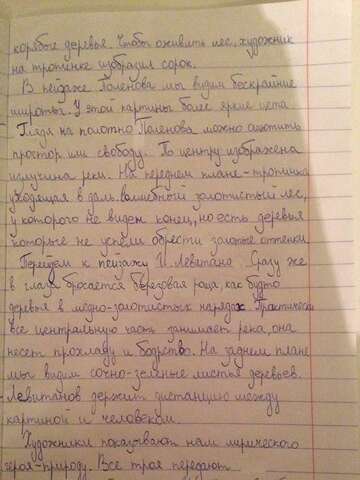 корявые деревья. Чтобы оживить лес, художник
на тропинке изобразил сорок.
В пейзаже Поленова мы видим бескрайние
широты. У этой картины более яркие цета
Глядя на полотно Поленова можно ощютить
простор или свободу. По центру изображена
излучина реки. На переднем плане-тропинка
уходящая в даль. волшебный золотистый лес,
у которого не виден конец, но есть деревья
которые не успели обрести золотые оттенки
Перейдем к пейзажу И. Левитана. Сразу же
в глаза бросается березовая роща, как будто
деревья в медно-золотистых нарядах. Практически
все центральную часть занимает река, она
несет прохладу и бодрство. На заднем плане
мы видим сочно-зеленые листья деревьев.
Левитанов держит дистанцию между
картиной и человеком.
Художники показывают нам лирического
героя-природу. Все трое передают